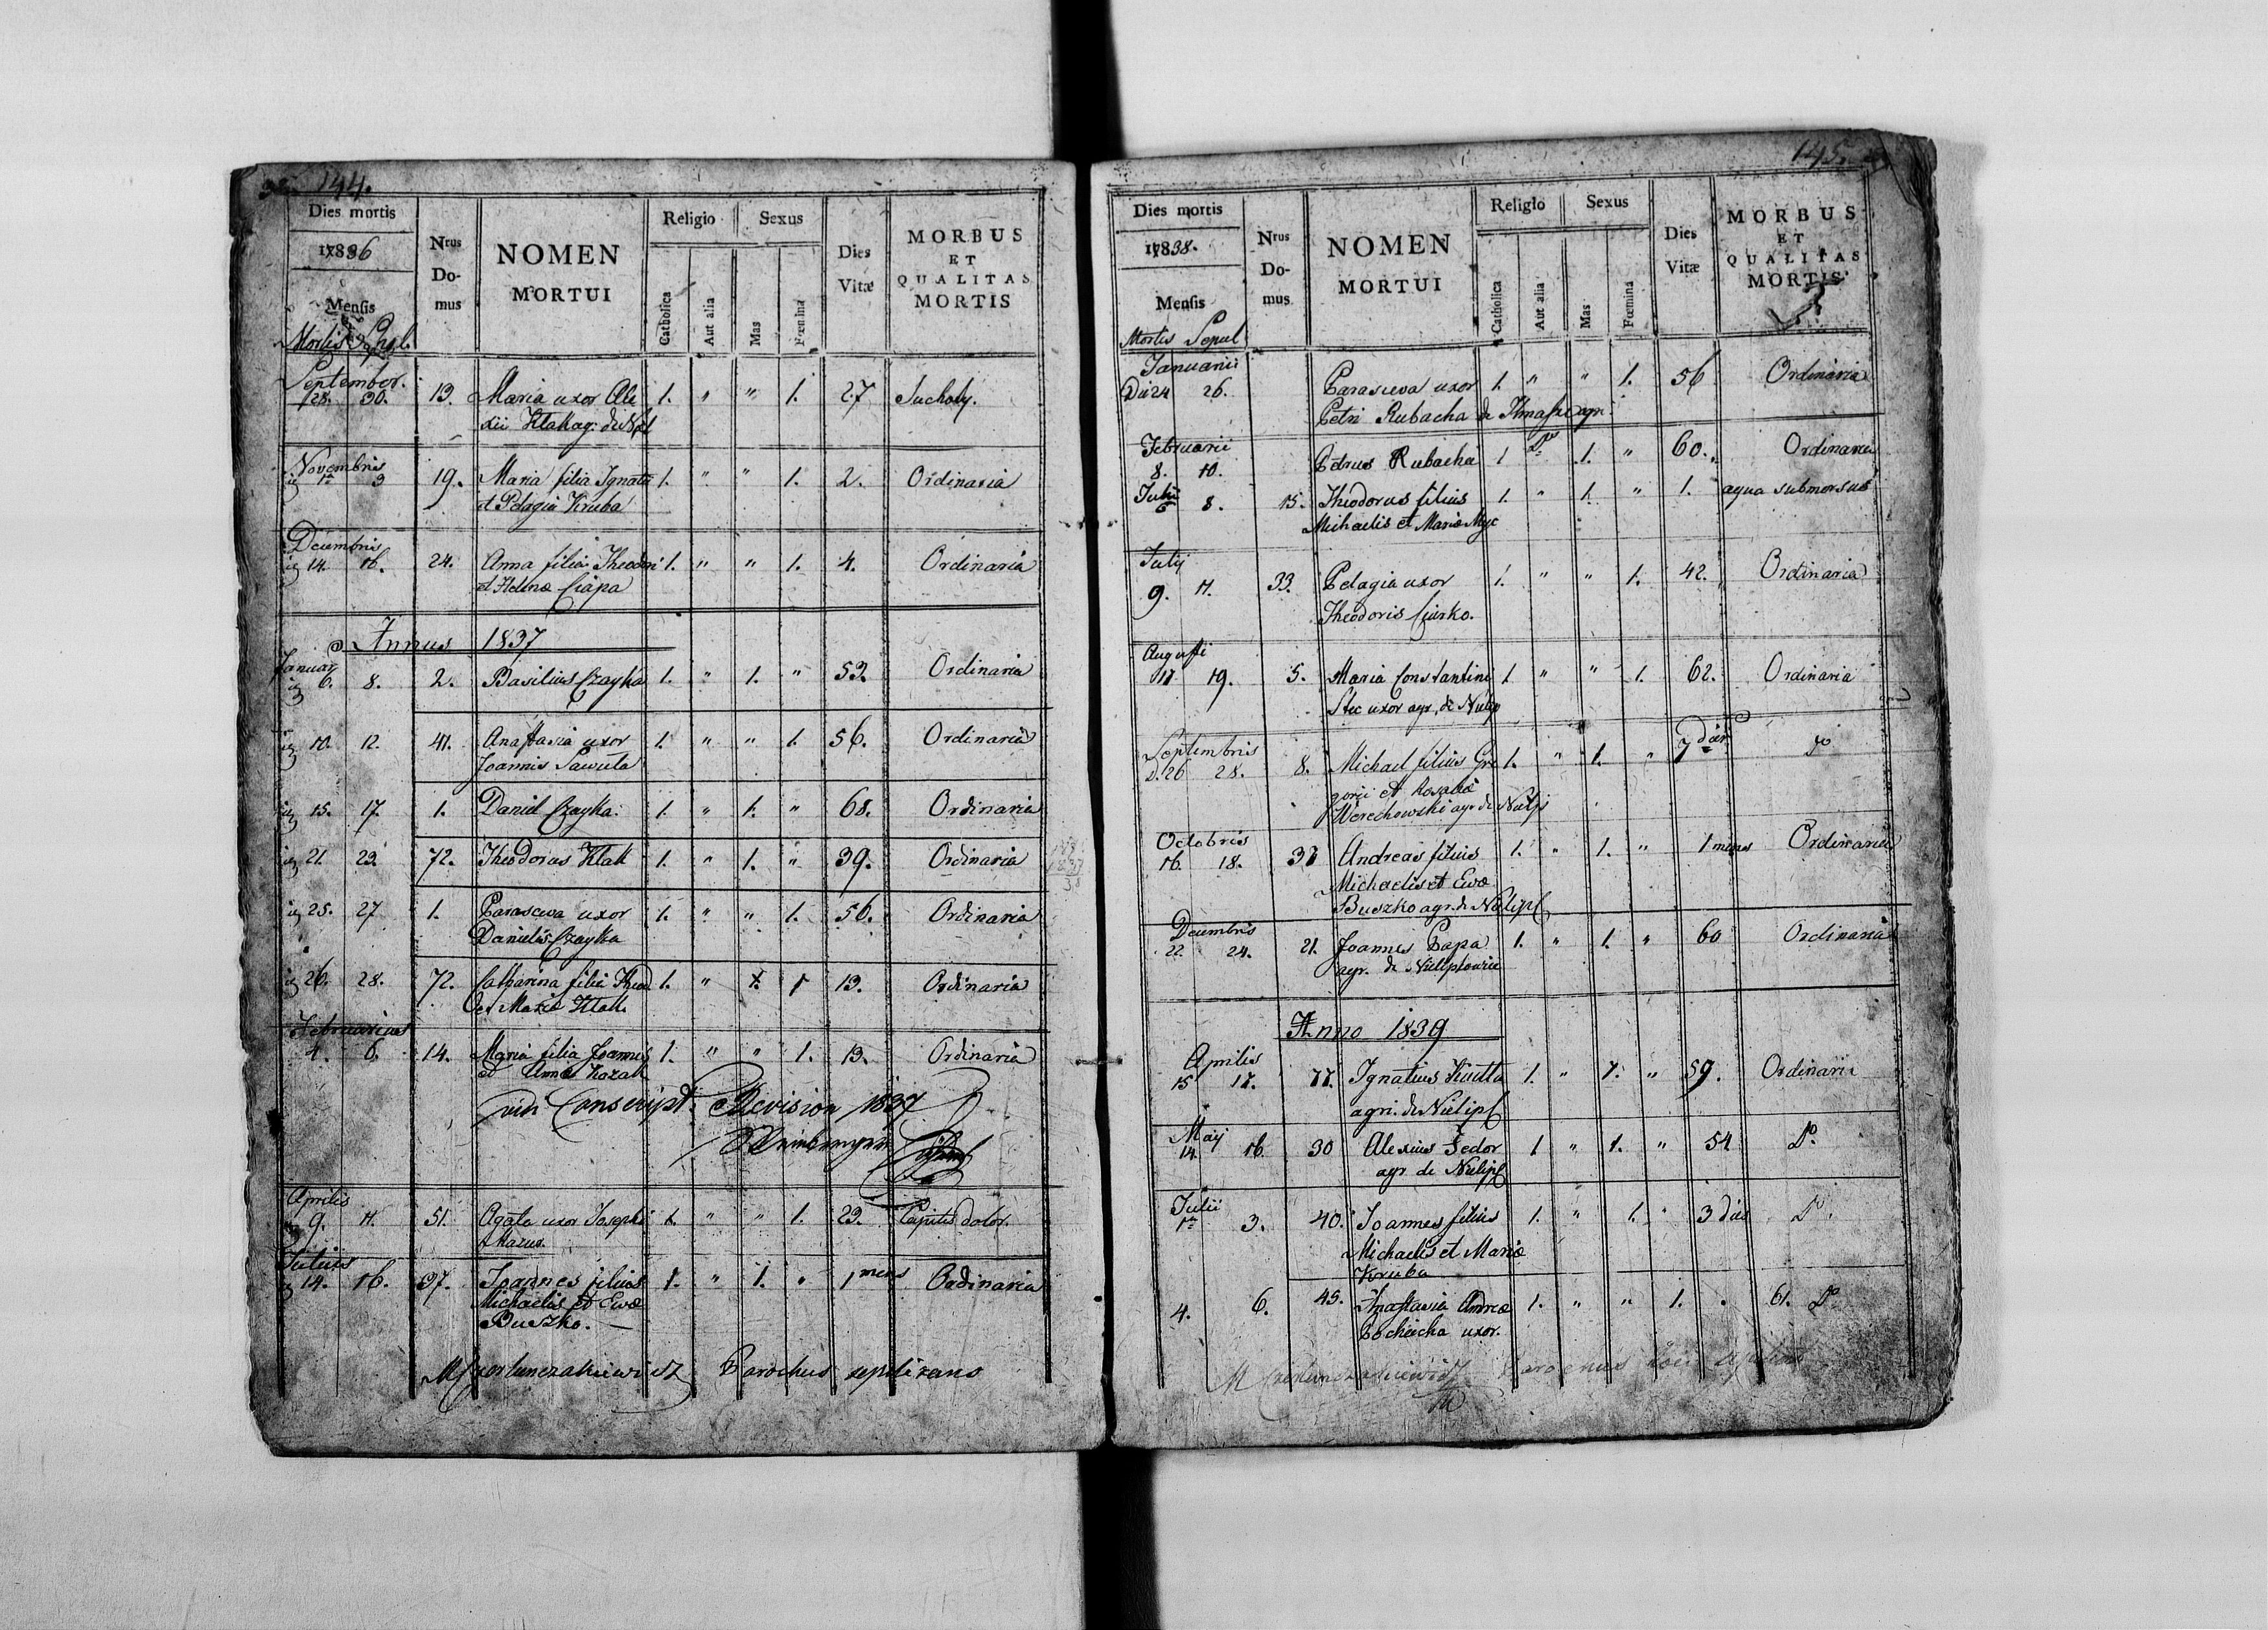 144.
Dies mortis
1836
Mensis
Mortis Sepul.
Nrus Do- mus
NOMEN MORTUI
Religio
Catholica
Aut alia
Sexus
Mas
Fœmina
Dies Vitæ
MORBUS ET QUALITAS MORTIS
September.
28. 30. 13. Maria uxor Ale 1. " " 1. 27 Suchoty.
xii Klak agr: de
Novembris
1ª 3 19. Maria filia Ignatii 1. " " 1. 2. Ordinaria
et Pelagia Kruba
Decembris
14. 16. 24. Anna filia Theodori 1. " " 1. 4. Ordinaria
et Helenæ Ciapa
Annus 1837
Januar
6. 8. 2. Basilius Czayka 1. " 1. " 53. Ordinaria
10. 12. 41. Anastasia uxor 1. " " 1. 56. Ordinaria
Joannis Sawuta
15. 17. 1. Daniel Czayka. 1. " 1. " 68. Ordinaria
21. 23. 72. Theodorus Klak 1. " 1. " 39. Ordinaria
25. 27 1. Parascewa uxor 1. " " 1. 56. Ordinaria
Danielis Czayka
26. 28. 72. Catharina filia Theod 1. " 1 13. Ordinaria
et Mariæ Klak.
Februarius
4. 6. 14. Maria filia Joannis 1. " " 1. 13. Ordinaria
et Annæ Kozak
Conscript. Revision 1837
Aprilis
9. 11. 51. Agata uxor Josephi 1. " " 1. 23. Capitis dolor.
Mazur.
Julius
14. 16. 37. Joannes filius 1. " 1. " 1 mens Ordinaria
Michaelis et Ewæ
Buszko.
Parochus
145.
Dies mortis
1838.
Mensis
Mortis Sepul
Nrus Do- mus
NOMEN MORTUI
Religio
Catholica
Aut alia
Sexus
Mas
Fœmina
Dies Vitæ
MORBUS ET QUALITAS MORTIS
Januarii
24 26. Parascewa uxor 1. " " 1. 56 Ordinaria
Petri Rubacha de
Februarii
8. 10. Petrus Rubacha 1 1. " 60. Ordinaria
8. 15. Theodorus filius 1. " 1. " 1. aqua submersus
Michaelis et Mariæ Myc
Julij
9. 11. 33. Pelagia uxor 1. " " 1. 42. Ordinaria
Theodoris Ciurko.
Augusti
17 19. 5. Maria Constantini 1. " " 1. 62. Ordinaria
Stec uxor agr. de Nielip
Septembris
d. 26 28. 8. Michael filius Gre 1. " 1. " 7 dier dº
gorii et Rosaliæ
Werechowski agr de Nielip
Octobris
16. 18. 37 Andreas filius 1. " 1. " 1 mens Ordinaria
Michaelis et Ewæ
Buszko agr. de Nielip
Decembris
22. 24. 21. Joannes Papa 1. " 1. " 60 Ordinaria
agr. de Nieliplowice
Anno 1839
Aprilis
15 17. 77. Ignatius 1. " 1. " 59. Ordinaria
agri. de Nielip
Maij
14. 16. 30 Alexius Fedor 1 " 1. " 54 Dº.
agr. de Nielip
Julii
1ª 3. 40. Joannes filius 1. " 1. " 3 dies Dº.
Michaelis et Mariæ
Kruba
4. 6. 45. Anastasia Andreæ 1. " " 1. 61. Dº
uxor.